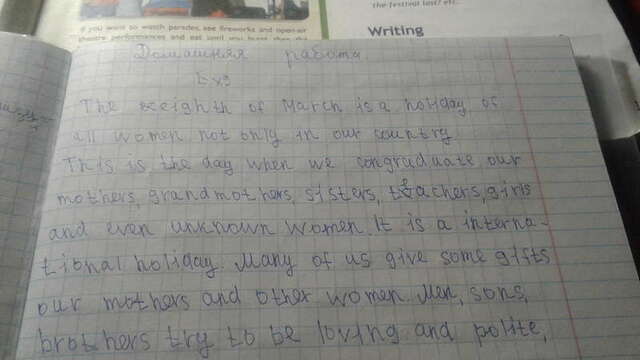 if you want to watch parades, see fireworks and open-air
theatre performances and eat until you burst then the
the festival last? etc.
Writing
Домашняя работа
Ex9
The eeighth of March is a holiday of
all women not only in our country
This is the day when we congraduate our
mothers, grandmothers, sisters, teachers, girls
and even unknown women. It is a interna-
tional holiday. Many of us give some gifts
our mothers and other women. Men, sons,
brothers try to be loving and polite,